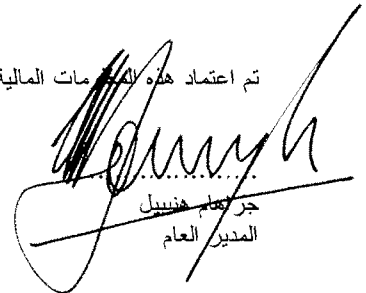 تم اعتماد هذه المعلومات المالية
جراهام هنيبيل
المدير العام